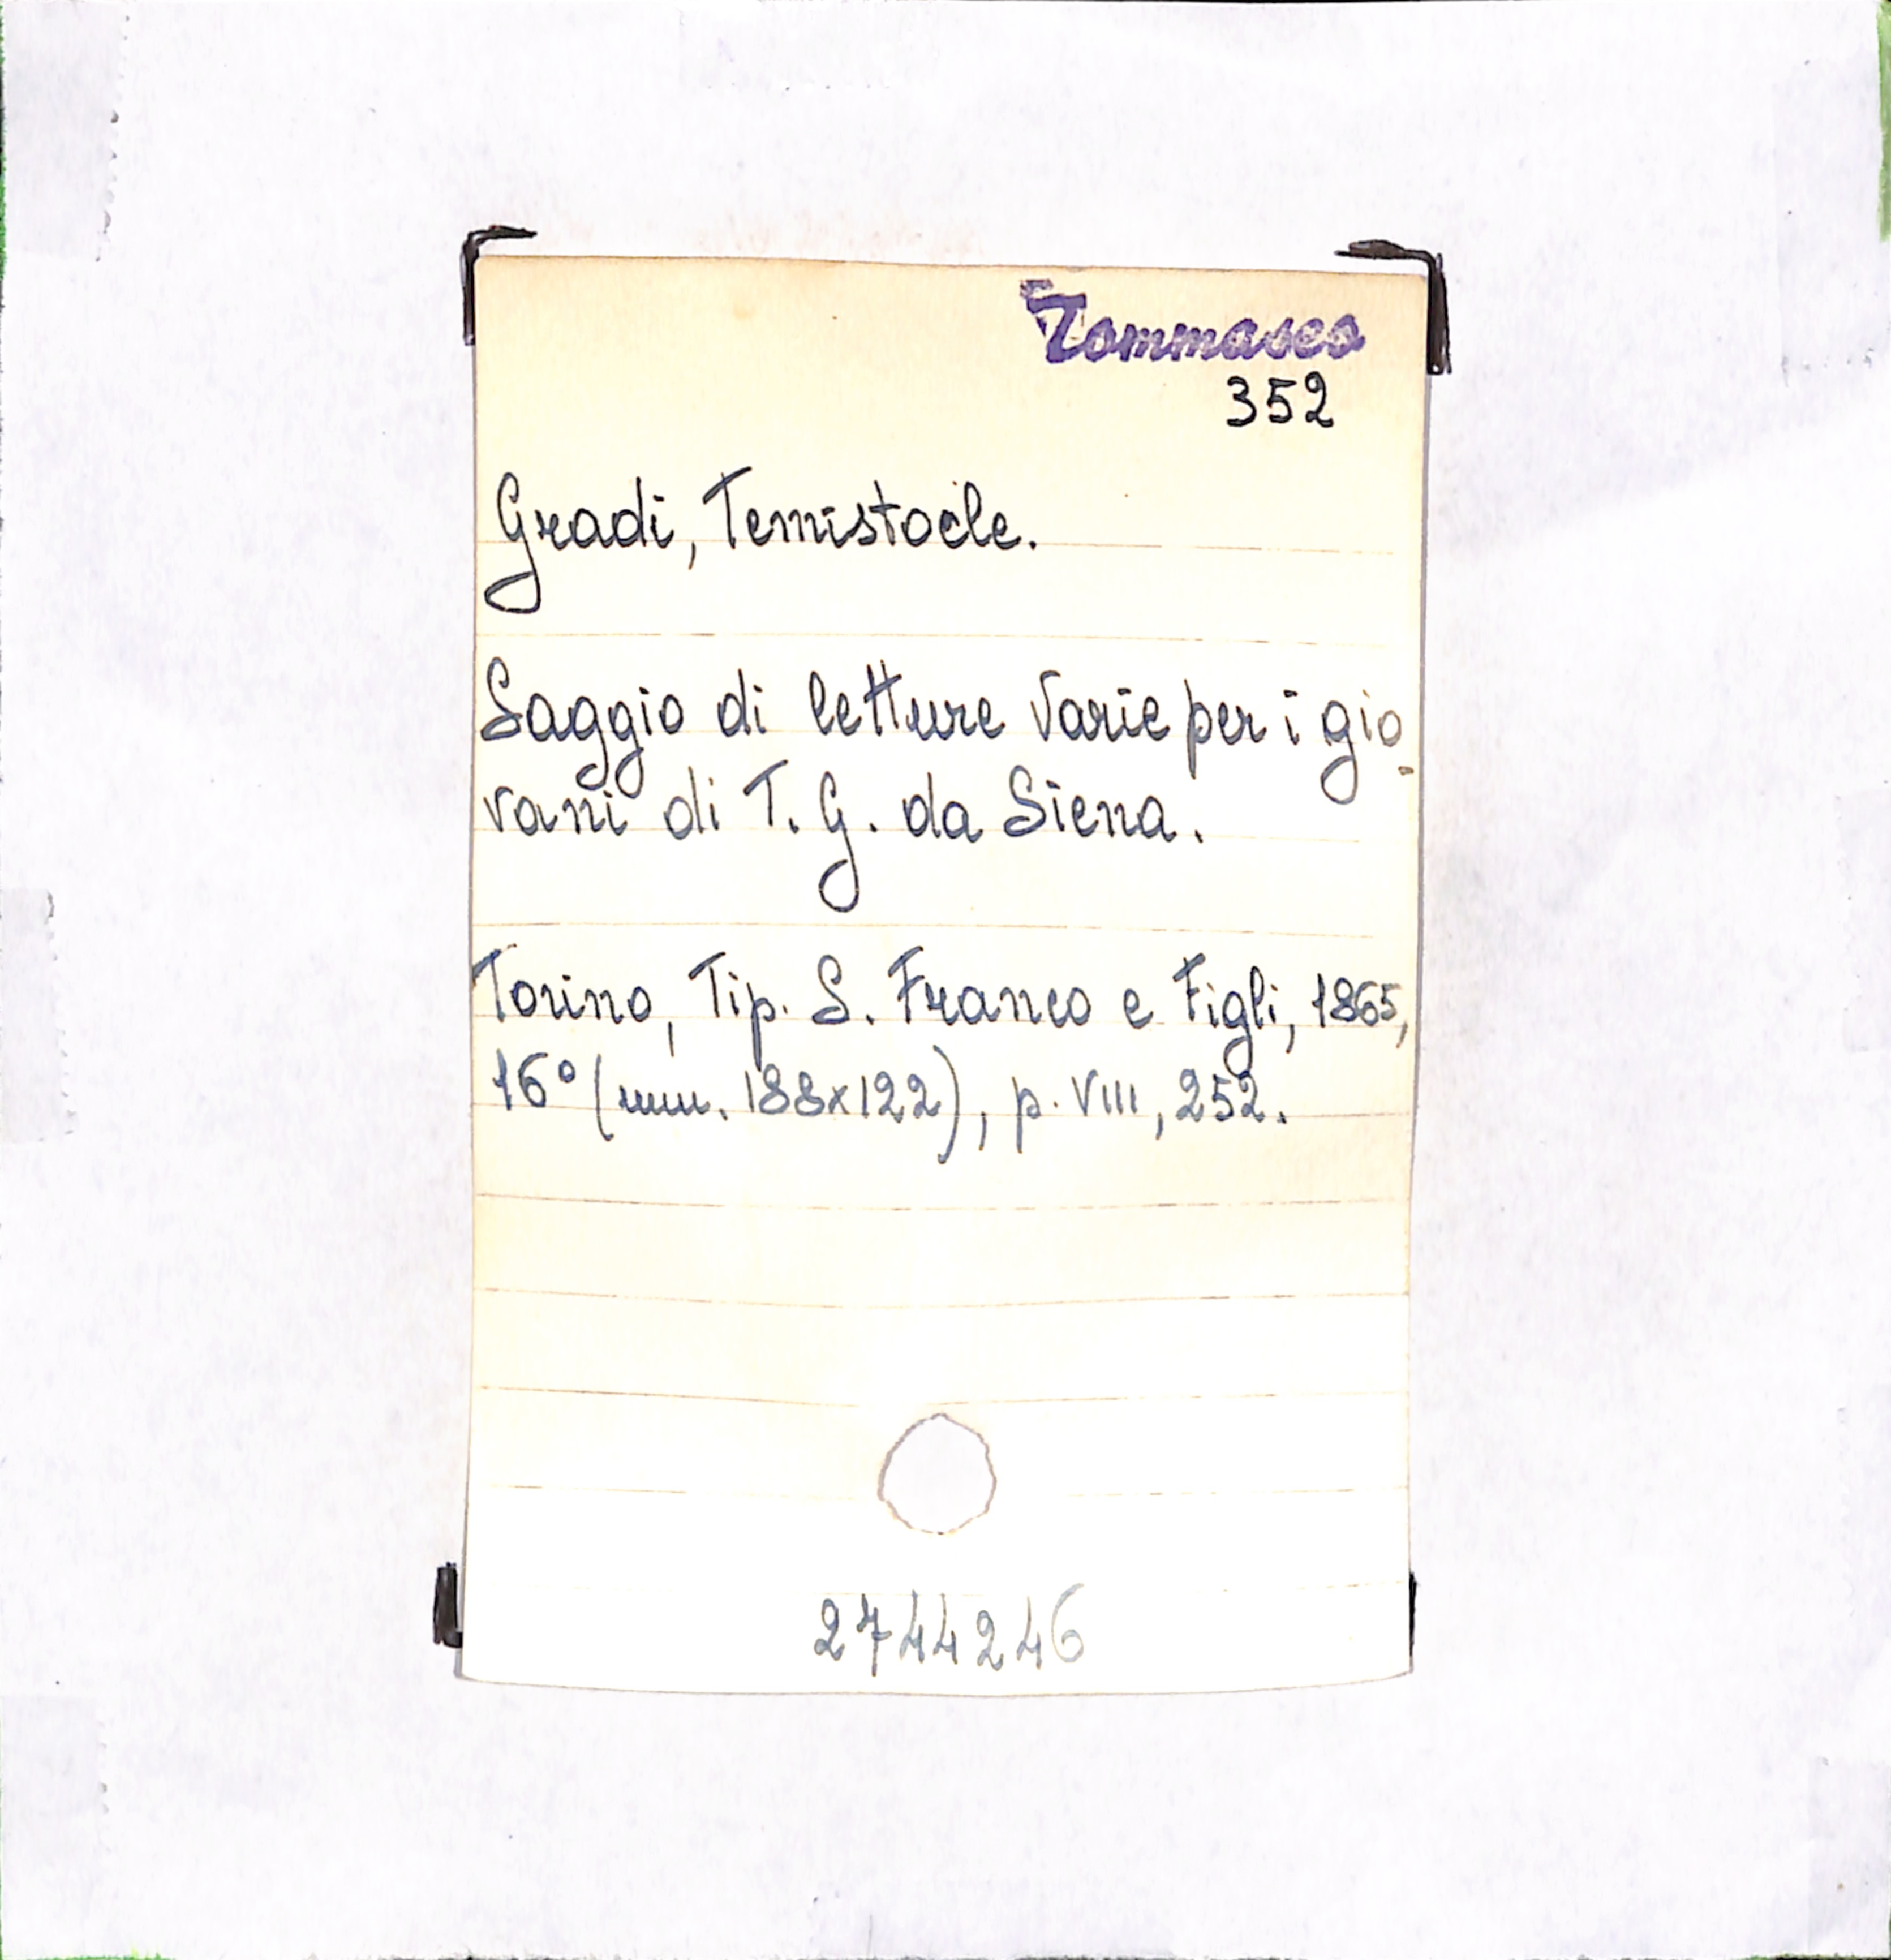 Tommaseo
352
Gradi, Temistocle.
Saggio di letture varie per i gio-
vani di T. G. da Siena.
Torino, Tip. S. Franco e Figli, 1865,
16° (mm. 188x122), p. VIII, 252.
2744246